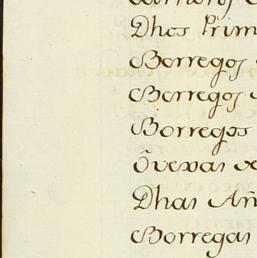 Carneros
Dhos Prim
Borregos
Borregos
Borregos
Ōvexas
Dhas Añ
Borregas